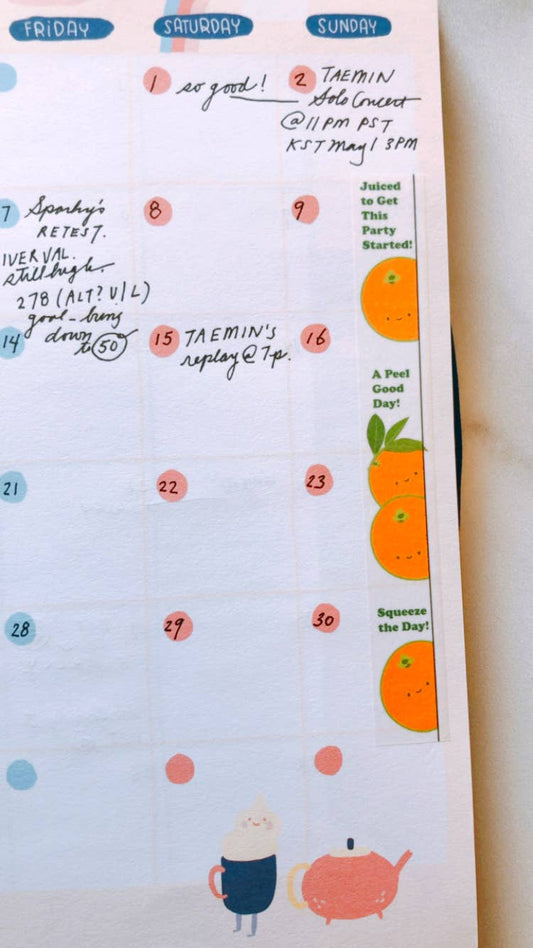 FRIDAY SATURDAY SUNDAY
1 so good!
2 TAEMIN
Solo Concert
@ 11 PM PST
KST May 1 3PM
7 Sparky's
RETEST.
IVER VAL.
still high.
278 (ALT? U/L)
goal - bring
down
to 50
8
9
Juiced
to Get
This
Party
Started!
14
15 TAEMIN'S
replay @ 7p.
16
A Peel
Good
Day!
21
22
23
28
29
30
Squeeze
the Day!